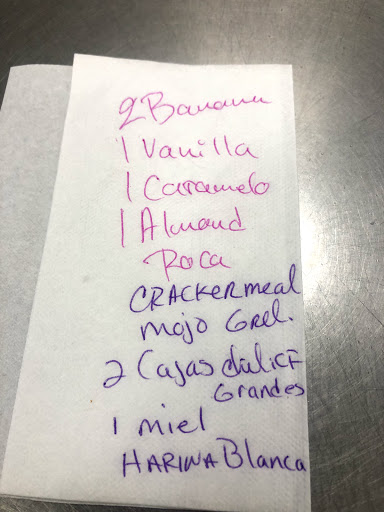 2 Banana
1 Vanilla
1 Caramelo
1 Almond
Roca
CRACKERmeal
mojo Grel.
2 Cajas
Grandes
1 miel
HARINA Blanca